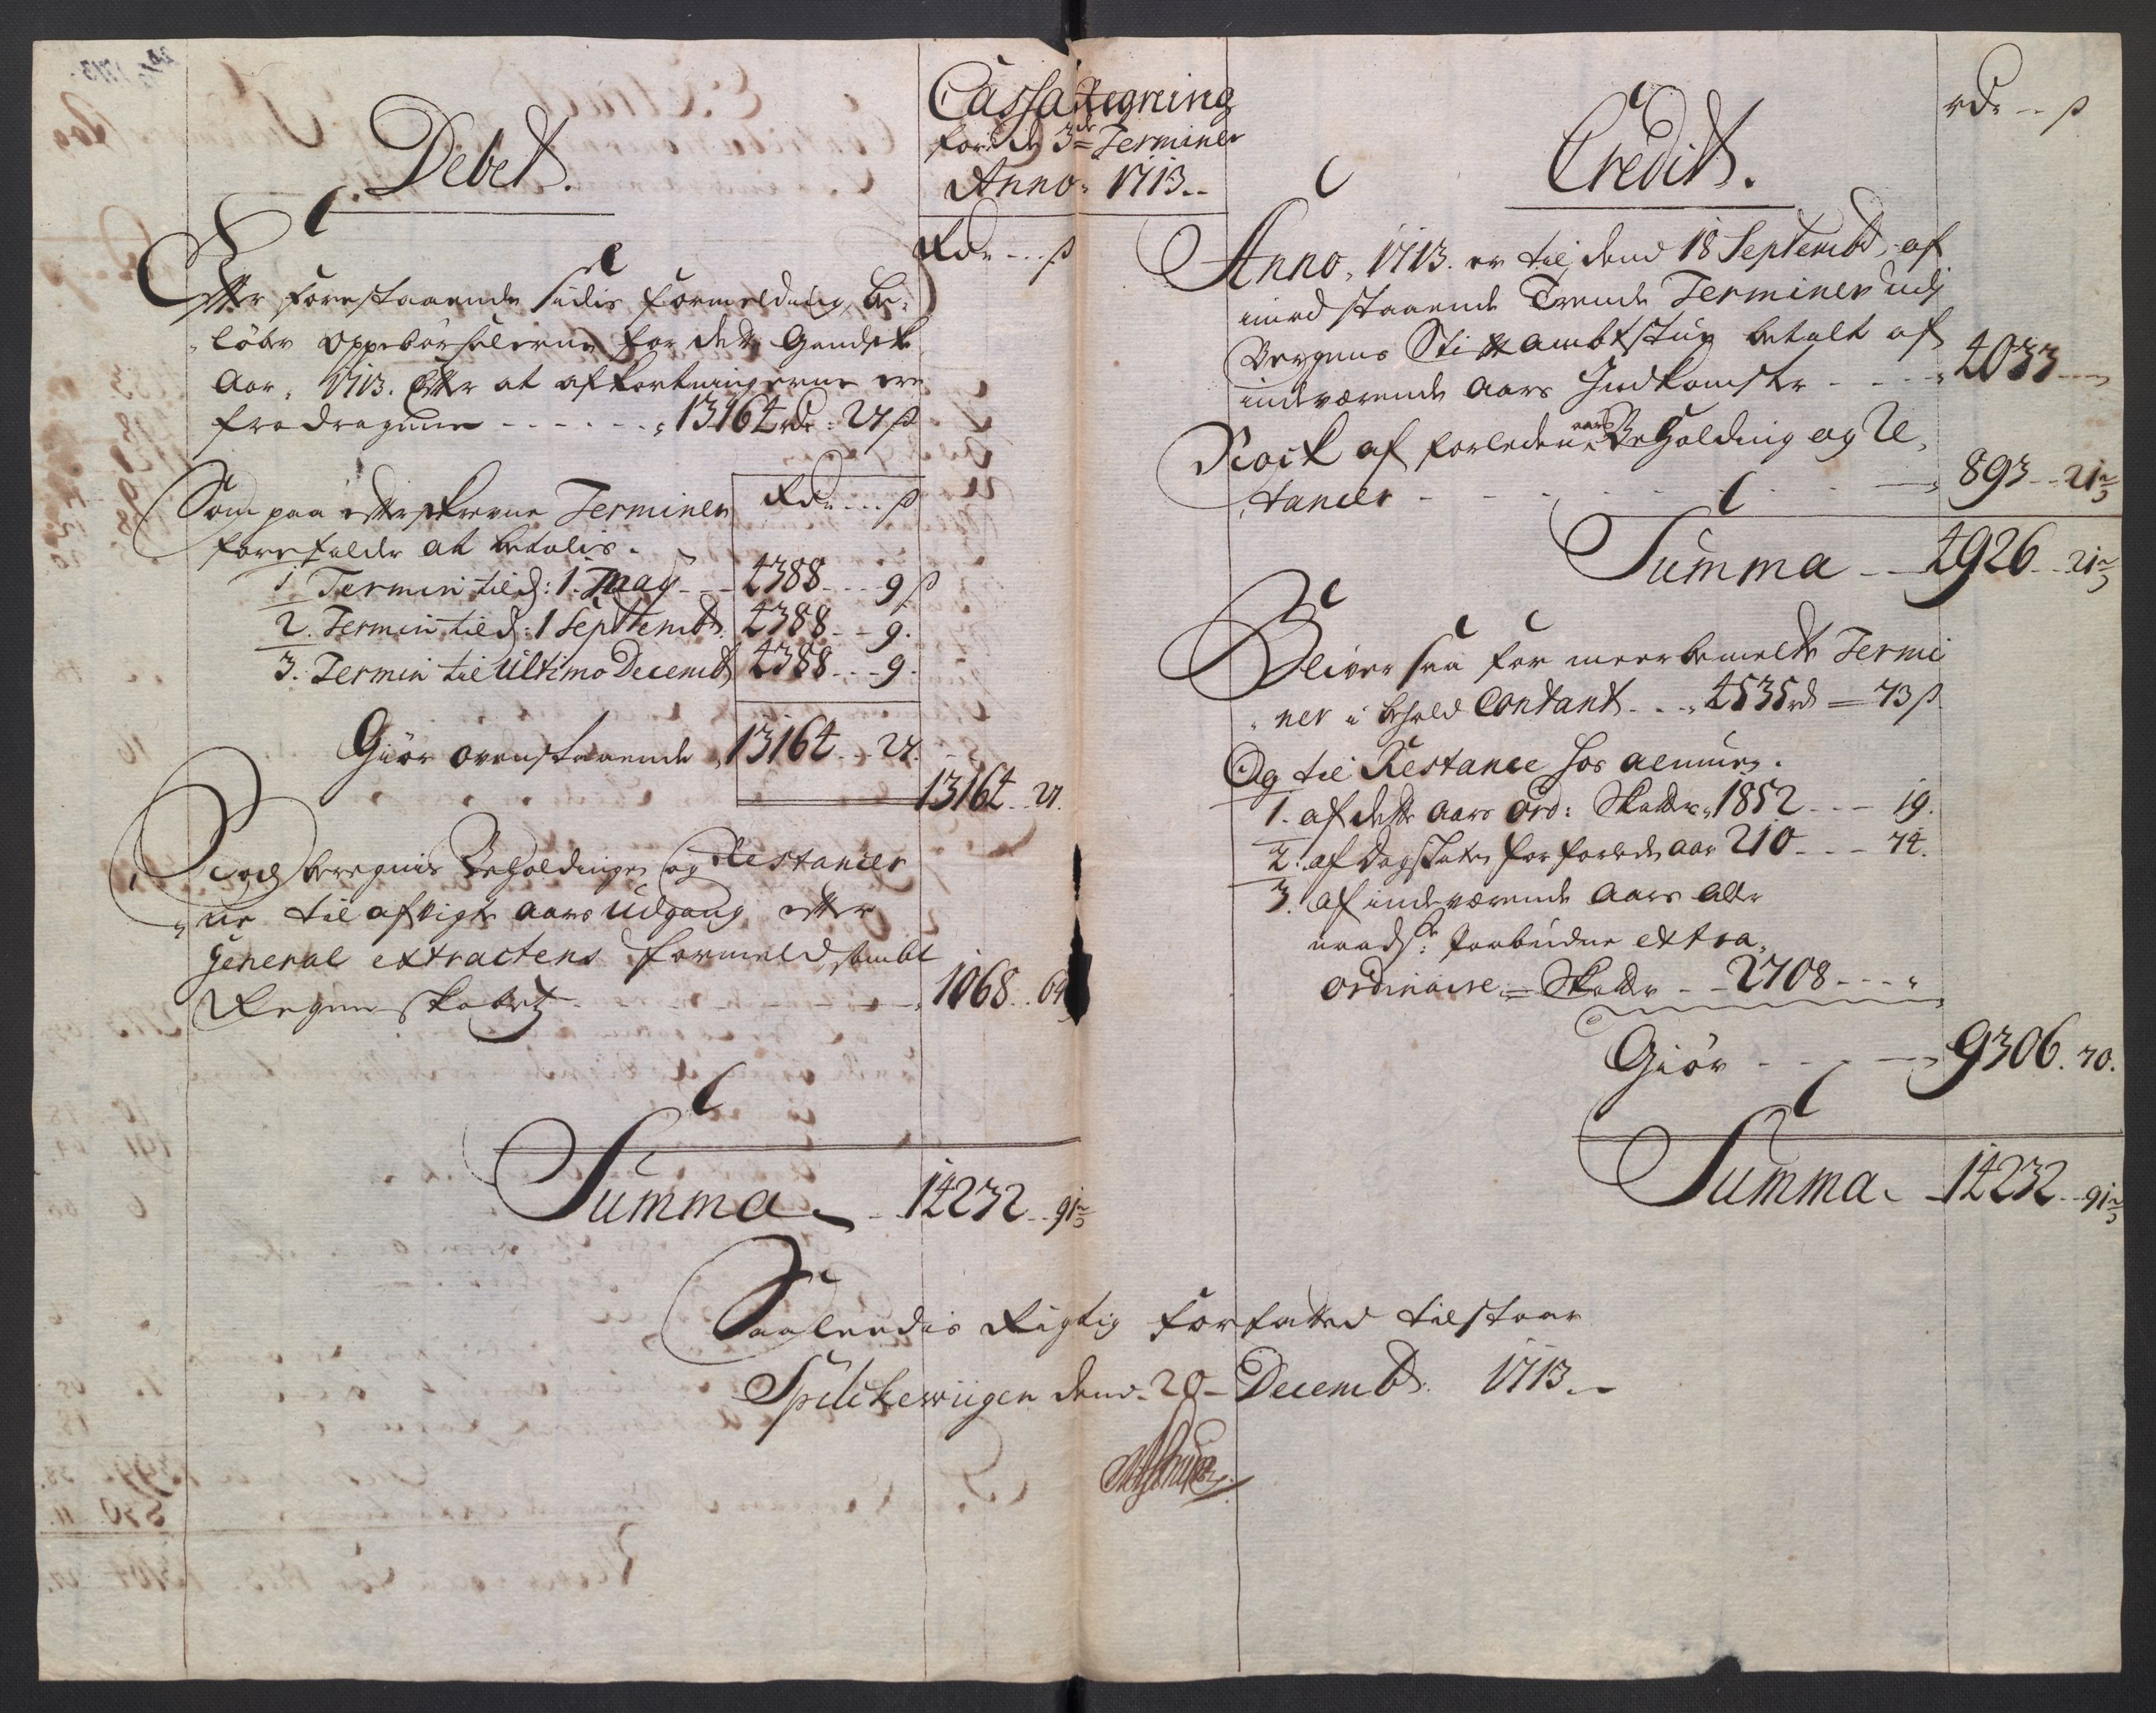 Cassa Regning
for de 3de Terminer
Anno 1713
Debet.
Rdr ß
Effter forestaaende sidis formelding be¬
løber oppebørselerne for dette gandske
Aar 1713. Effter at afkortningerne ere
fradragne 13164 rdr: 27 ß
Som paa effterskrevne Terminer Rdr ß
forefalder at betalis.
1. Termin til d: 1. Maij 4388 9 ß
2. Termin til d: 1 Septembr 4388 9.
3. Termin til Ultimo Decembr 4388 9.
Giør ovenstaaende 13164 27.
13164 27.
Noch beregnis Beholdingen og Restancer
ne til afvigte Aars Udgang effter
General extractens formeld, samt
Regenskabet 1068 64
Summa 14232 91⅔
Credit.
rdr ß
Anno 1713. er til dend 18 Septembr af
imodstaaende Trende Terminer udj
Bergens Stiftambtstue betalt af
indeværende Aars Indkomster 4033
Noch af forleden aars Beholding og Re¬
stancer 893 21⅔
Summa 4926 21⅔
Bliver saa for meerbemelte Termi
ner i behold Contant 4535 rd 73 ß
Og til Restance hos almuen.
1. af dette Aars Ord: Skatter 1852 19.
2. af dagskatten for forleden aar 210 74.
3. af indeværende Aars aller
naadste paabudne extra
ordinaire Skatter 2708
Giør 9306. 70.
Summa 14232 91⅔
Saaledis Rigtig forfatted tilstaar
Spilckewiigen dend 20 Decembr 1713